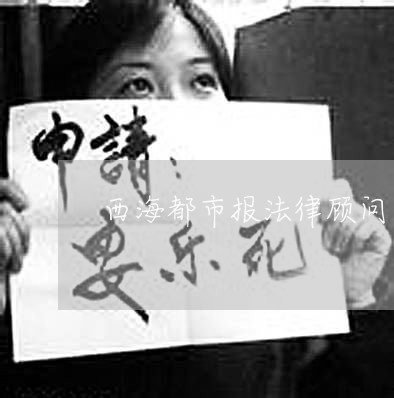 申請：
西海都市报法律顾问
要乐死